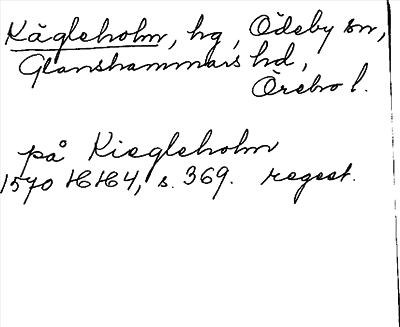 Kägleholm, hg, Ödeby sn,
Glanshammars hd,
Örebro l.
på Kiegleholm
1570 HH4, s. 369. regest.